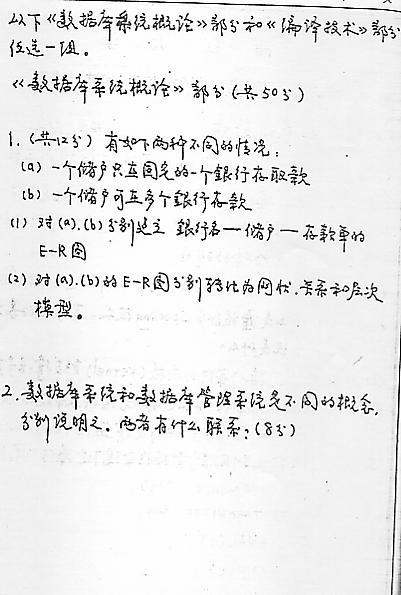 以下《数据库系统概论》部分和《编译技术》部分
任选一组。
《数据库系统概论》部分(共50分)
1. (共12分) 有如下两种不同的情况:
(a) 一个储户只在固定的一个银行存取款
(b) 一个储户可在多个银行存款
(1) 对(a).(b)分别建立 银行名—储户—存款单的
E-R图
(2) 对(a).(b)的E-R图分别转化为网状.关系和层次
模型。
2. 数据库系统和数据库管理系统是不同的概念,
分别说明之。两者有什么联系?(8分)